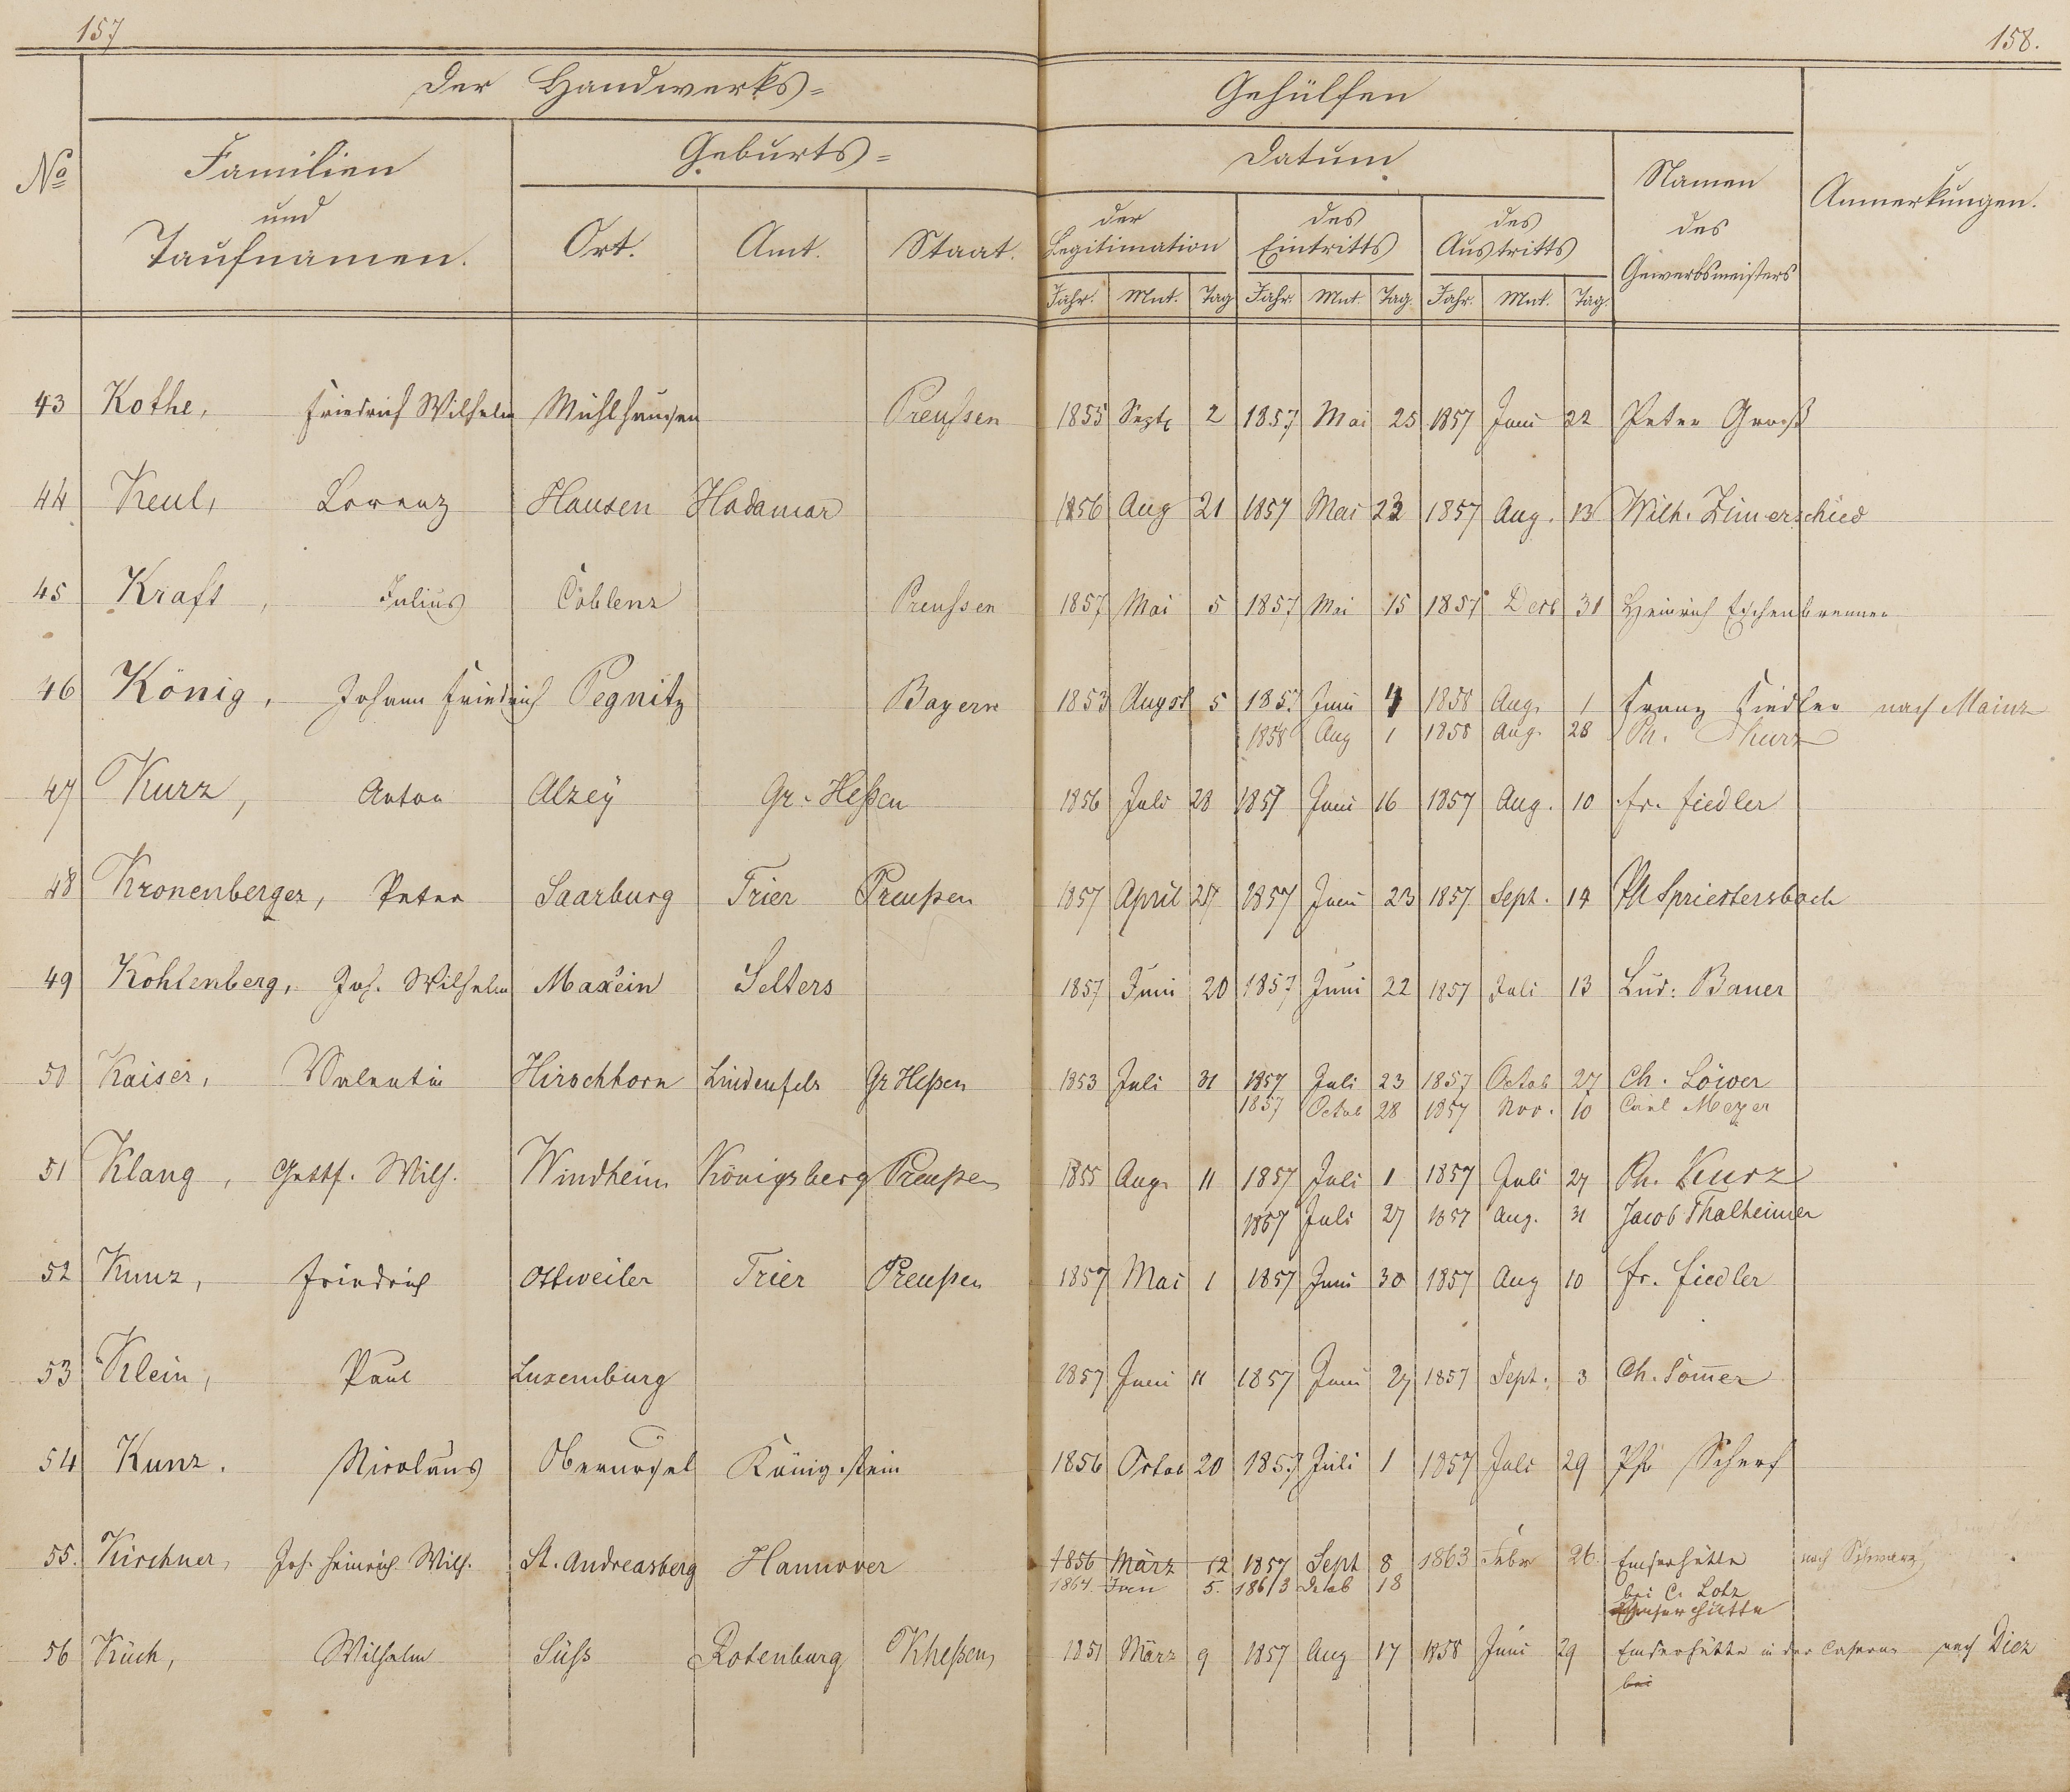 157
158.
Der Handwerks=
Gehülfen
No
Familien
und
Taufnamen.
Geburts=
Ort.
Amt.
Staat.
Datum
der
Legitimation
des
Eintritts
des
Austritts
Jahr. Mnt. Tag Jahr. Mnt. Tag. Jahr. Mnt. Tag.
Namen
des
Gewerbsmeisters
Anmerkungen.
43 Kothe, Friedrich Wilhelm Mühlhausen Preussen 1855 Sept 2 1857 Mai 25 1857 Juni 22 Peter Groß
44 Keul, Lorenz Hausen Hadamar 1856 Aug 21 1857 Mai 23 1857 Aug. 13 Wilh. Zimerschied
45 Kraft, Julius Coblenz Preussen 1857 Mai 5 1857 Mai 15 1857 Decb 31 Heinrich Eschenbrenner
46 König, Johann Friedrich Pegnitz Bayern 1853 Augst 5 1857 Juni 4 1858 Aug. 1 Franz Fiedler nach Mainz
1858 Aug 1 1858 Aug. 28 Ph. Kurz
47 Kurz, Anton Alzey Gr. Heßen 1856 Juli 28 1857 Juni 16 1857 Aug. 10 Fr. Fiedler
48 Kronenberger, Peter Saarburg Trier Preußen 1857 April 27 1857 Juni 23 1857 Sept. 14 Ph Spriestersbach
49 Kohlenberg, Joh. Wilhelm Maxein Selters 1857 Juni 20 1857 Juni 22 1857 Juli 13 Lud: Bauer
50 Kaiser, Valentin Hirschhorn Lindenfels Gr Heßen 1853 Juli 31 1857 Juli 23 1857 Octob 27 Ch. Löwer
1857 Octob 28 1857 Nov. 10 Carl Meyer
51 Klang, Gottf. Wilh. Windheim Königsberg Preußen 1855 Aug. 11 1857 Juli 1 1857 Juli 27 Ph. Kurz
1857 Juli 27 1857 Aug. 31 Jacob Thalheimer
52 Kunz, Friedrich Ottweiler Trier Preußen 1857 Mai 1 1857 Juni 30 1857 Aug 10 Fr. Fiedler
53 Klein, Paul Luxemburg 1857 Juni 11 1857 Juni 27 1857 Sept. 3 Ch. Som̄er
54 Kunz. Nicolaus Oberursel Königstein 1856 Octob 20 1857 Juli 1 1857 Juli 29 Ph Scherf
55. Kirchner, Joh. Heinrich Wilh. St. Andreasberg Hannover 1856 März 12 1857 Sept 8 1863 Febr 26 Emserhütte nach Schwarz
1864. 5. 1863 18 bei C. Lotz
56 Küch, Wilhelm Süss Rotenburg Kheßen 1851 März 9 1857 Aug 17 1858 Juni 29 Emserhütte in der Caserne nach Diez
bei